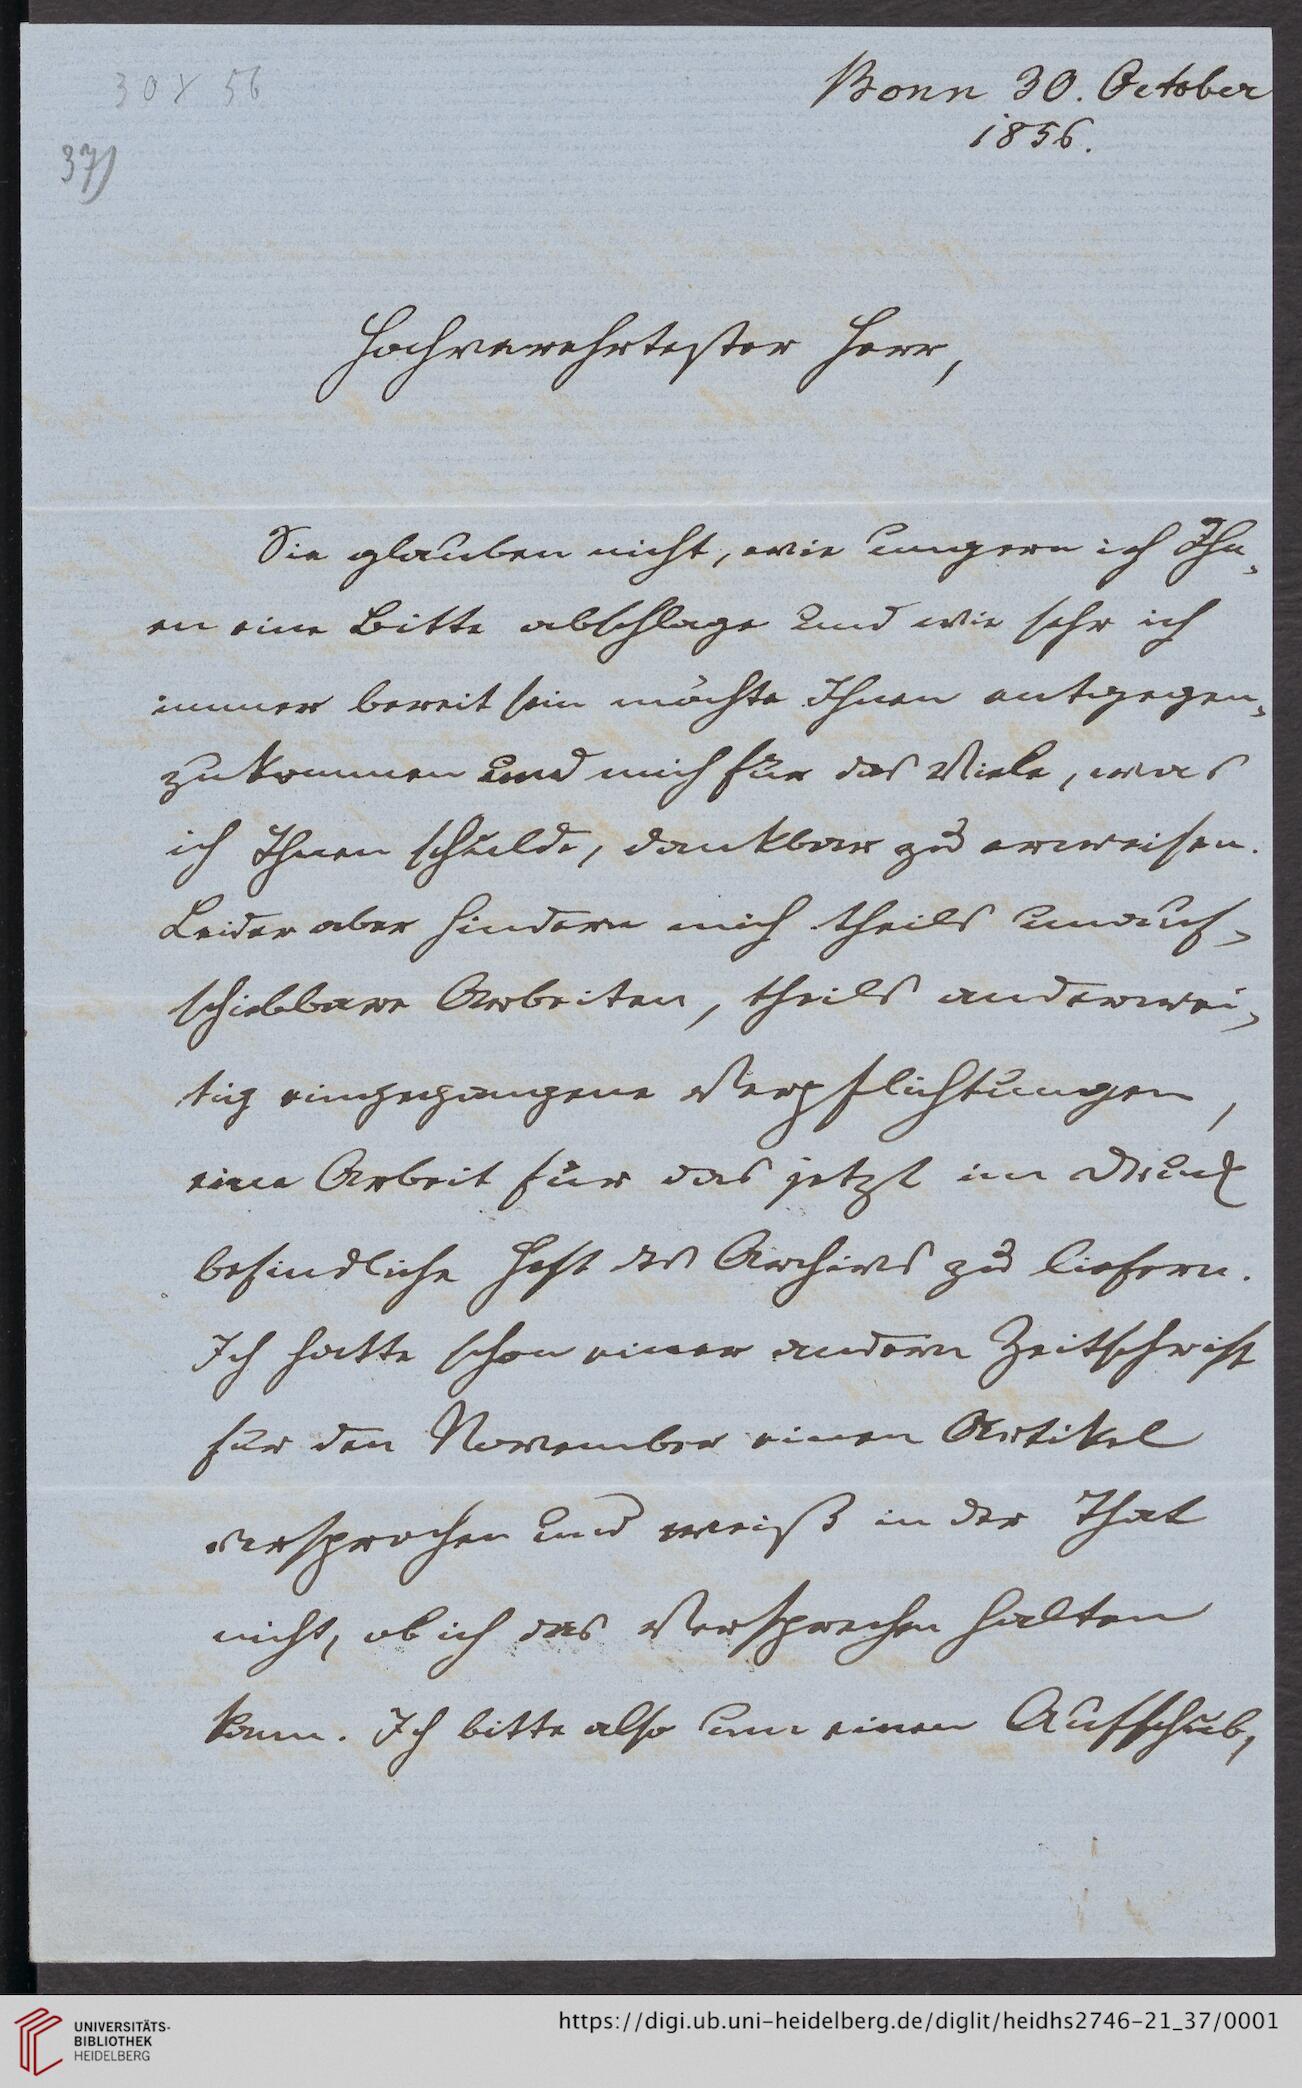 30 X 56
Bonn 30. October
1856.
37)
Hochverehrtester Herr,
Sie glauben nicht, wie ungern ich Ihn-
en eine Bitte abschlage und wie sehr ich
immer bereit sein möchte Ihnen entgegen-
zukommen und mich für das Viele, was
ich Ihnen schulde, dankbar zu erweisen.
Leider aber hindern mich theils unauf-
schiebbare Arbeiten, theils anderwei-
tig eingegangene Verpflichtungen,
eine Arbeit für das jetzt im Druck
befindliche Heft des Archivs zu liefern.
Ich hatte schon einer andern Zeitschrift
für den November einen Artikel
versprochen und weiß in der That
nicht, ob ich das Versprechen halten
kann. Ich bitte also um einen Aufschub,
UNIVERSITÄTS-
BIBLIOTHEK
HEIDELBERG
https://digi.ub.uni-heidelberg.de/diglit/heidhs2746-21_37/0001